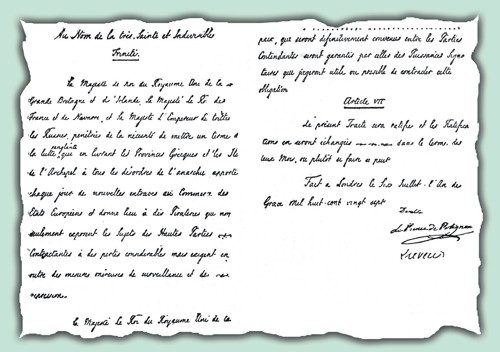 Au Nom de la très Sainte et Indivisible
Trinité.
Sa Majesté le roi du Royaume Uni de la
Grande Bretagne et d'Irlande, Sa Majesté Le Roi de
France et de Navarre, et Sa Majesté l'Empereur de toutes
les Russies, pénétrées de la nécessité de mettre un terme à
sanglante
la lutte, qui en livrant les Provinces Grecques et les Iles
de l'Archipel à tous les désordres de l'anarchie apporte
chaque jour de nouvelles entraves au Commerce des
Etats Européens et donne lieu à des Pirateries qui non
seulement exposent les Sujets des Hautes Parties
Contractantes à des pertes considérables mais exigent en
outre des mesures onéreuses de surveillance et de
répression.
Sa Majesté Le Roi du Royaume Uni de la
paix, qui seront définitivement convenus entre les Parties
Contendantes seront garantis par celles des Puissances Signa-
taires qui jugeront utile ou possible de contracter cette
obligation
Article VII
Le présent Traité sera ratifié et les Ratifica
tions en seront échangées dans le terme de
deux Mois, ou plutôt si faire se peut
Fait à Londres le Six Juillet. l'An de
Grace Mil huit-cent vingt sept
Dudley
Le Prince de Polignac
Lieven